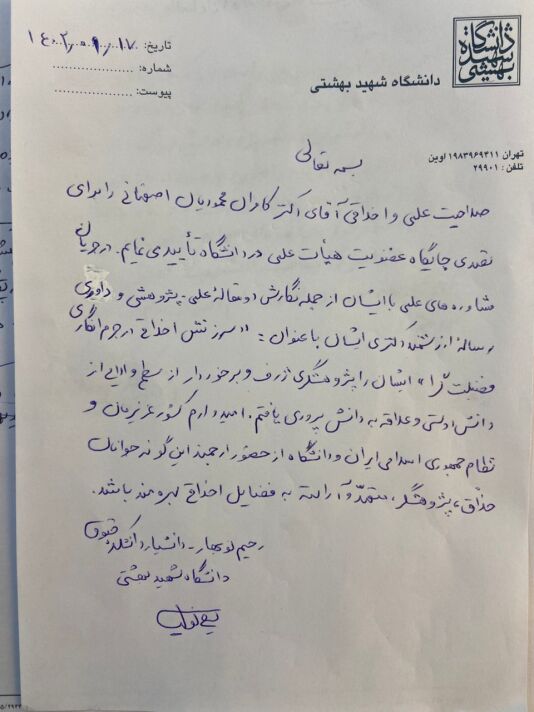 دانشگاه شهید بهشتی
دانشگاه شهید بهشتی
تاریخ: ۱۴۰۲٫۰۹٫۱۷
شماره:
پیوست:
تهران ۱۹۸۳۹۶۹۴۱۱ اوین
تلفن: ۲۹۹۰۱
بسمه تعالی
صلاحیت علمی و اخلاقی آقای دکتر کامران محمودیان اصفهانی را برای
تصدی جایگاه عضویت هیأت علمی در دانشگاه تأیید می نمایم. در جریان
مشاوره های علمی با ایشان از جمله نگارش دو مقالهٔ علمی-پژوهشی و داوری
رسالهٔ ارزشمند دکتری ایشان با عنوان: "سرزنش اخلاقی در جرم انگاری
فضیلت گرا" ایشان را پژوهشگری ژرف و برخوردار از سطح والایی از
دانش اندوزی و علاقه به دانش پروری یافتم. امیدوارم کشور عزیزمان و
نظام جمهوری اسلامی ایران و دانشگاه از حضور ارجمند این گونه جوانان
حاذق، پژوهشگر، متعهد و آراسته به فضایل اخلاقی بهره مند باشد.
رحیم نوبهار - دانشیار دانشکده حقوق
دانشگاه شهید بهشتی